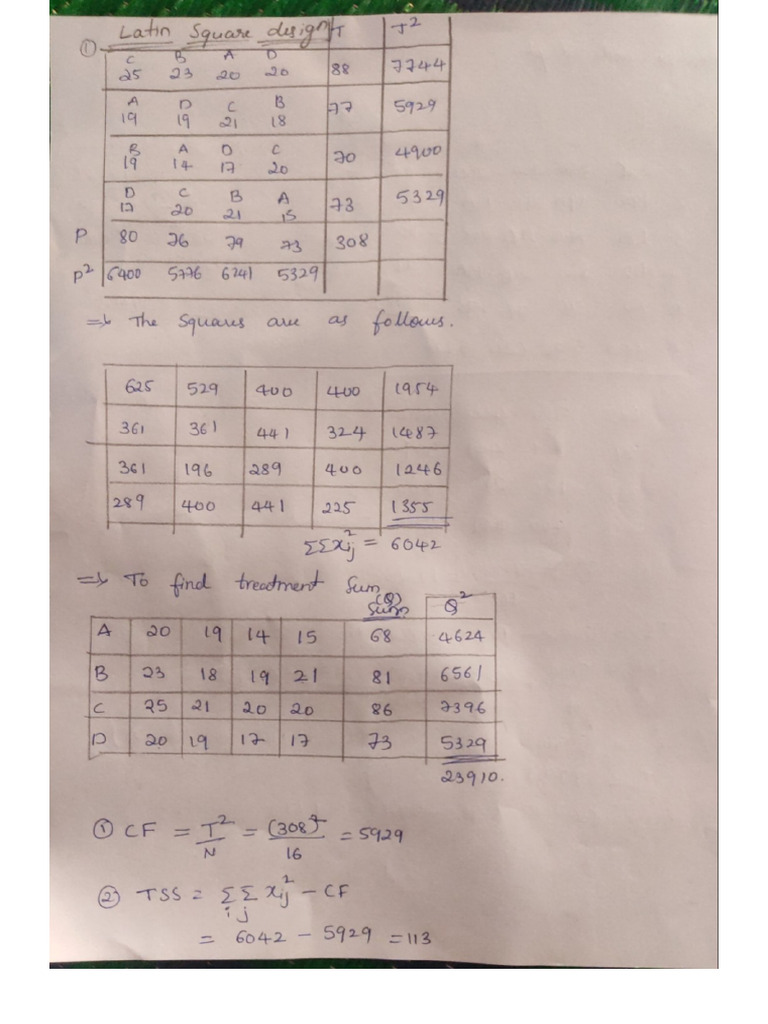 ① Latin Square design T T²
C B A D
25 23 20 20 88 7744
A D C B
19 19 21 18 77 5929
B A D C
19 14 17 20 70 4900
D C B A
17 20 21 15 73 5329
P 80 76 79 73 308
P² 6400 5776 6241 5329
=> The Squares are as follows.
625 529 400 400 1954
361 361 441 324 1487
361 196 289 400 1246
289 400 441 225 1355
ΣΣxij² = 6042
=> To find treatment Sum
(Q)
Sum Q²
A 20 19 14 15 68 4624
B 23 18 19 21 81 6561
C 25 21 20 20 86 7396
D 20 19 17 17 73 5329
23910.
① CF = T²/N = (308)²/16 = 5929
② TSS = Σi Σj xij² - CF
= 6042 - 5929 = 113